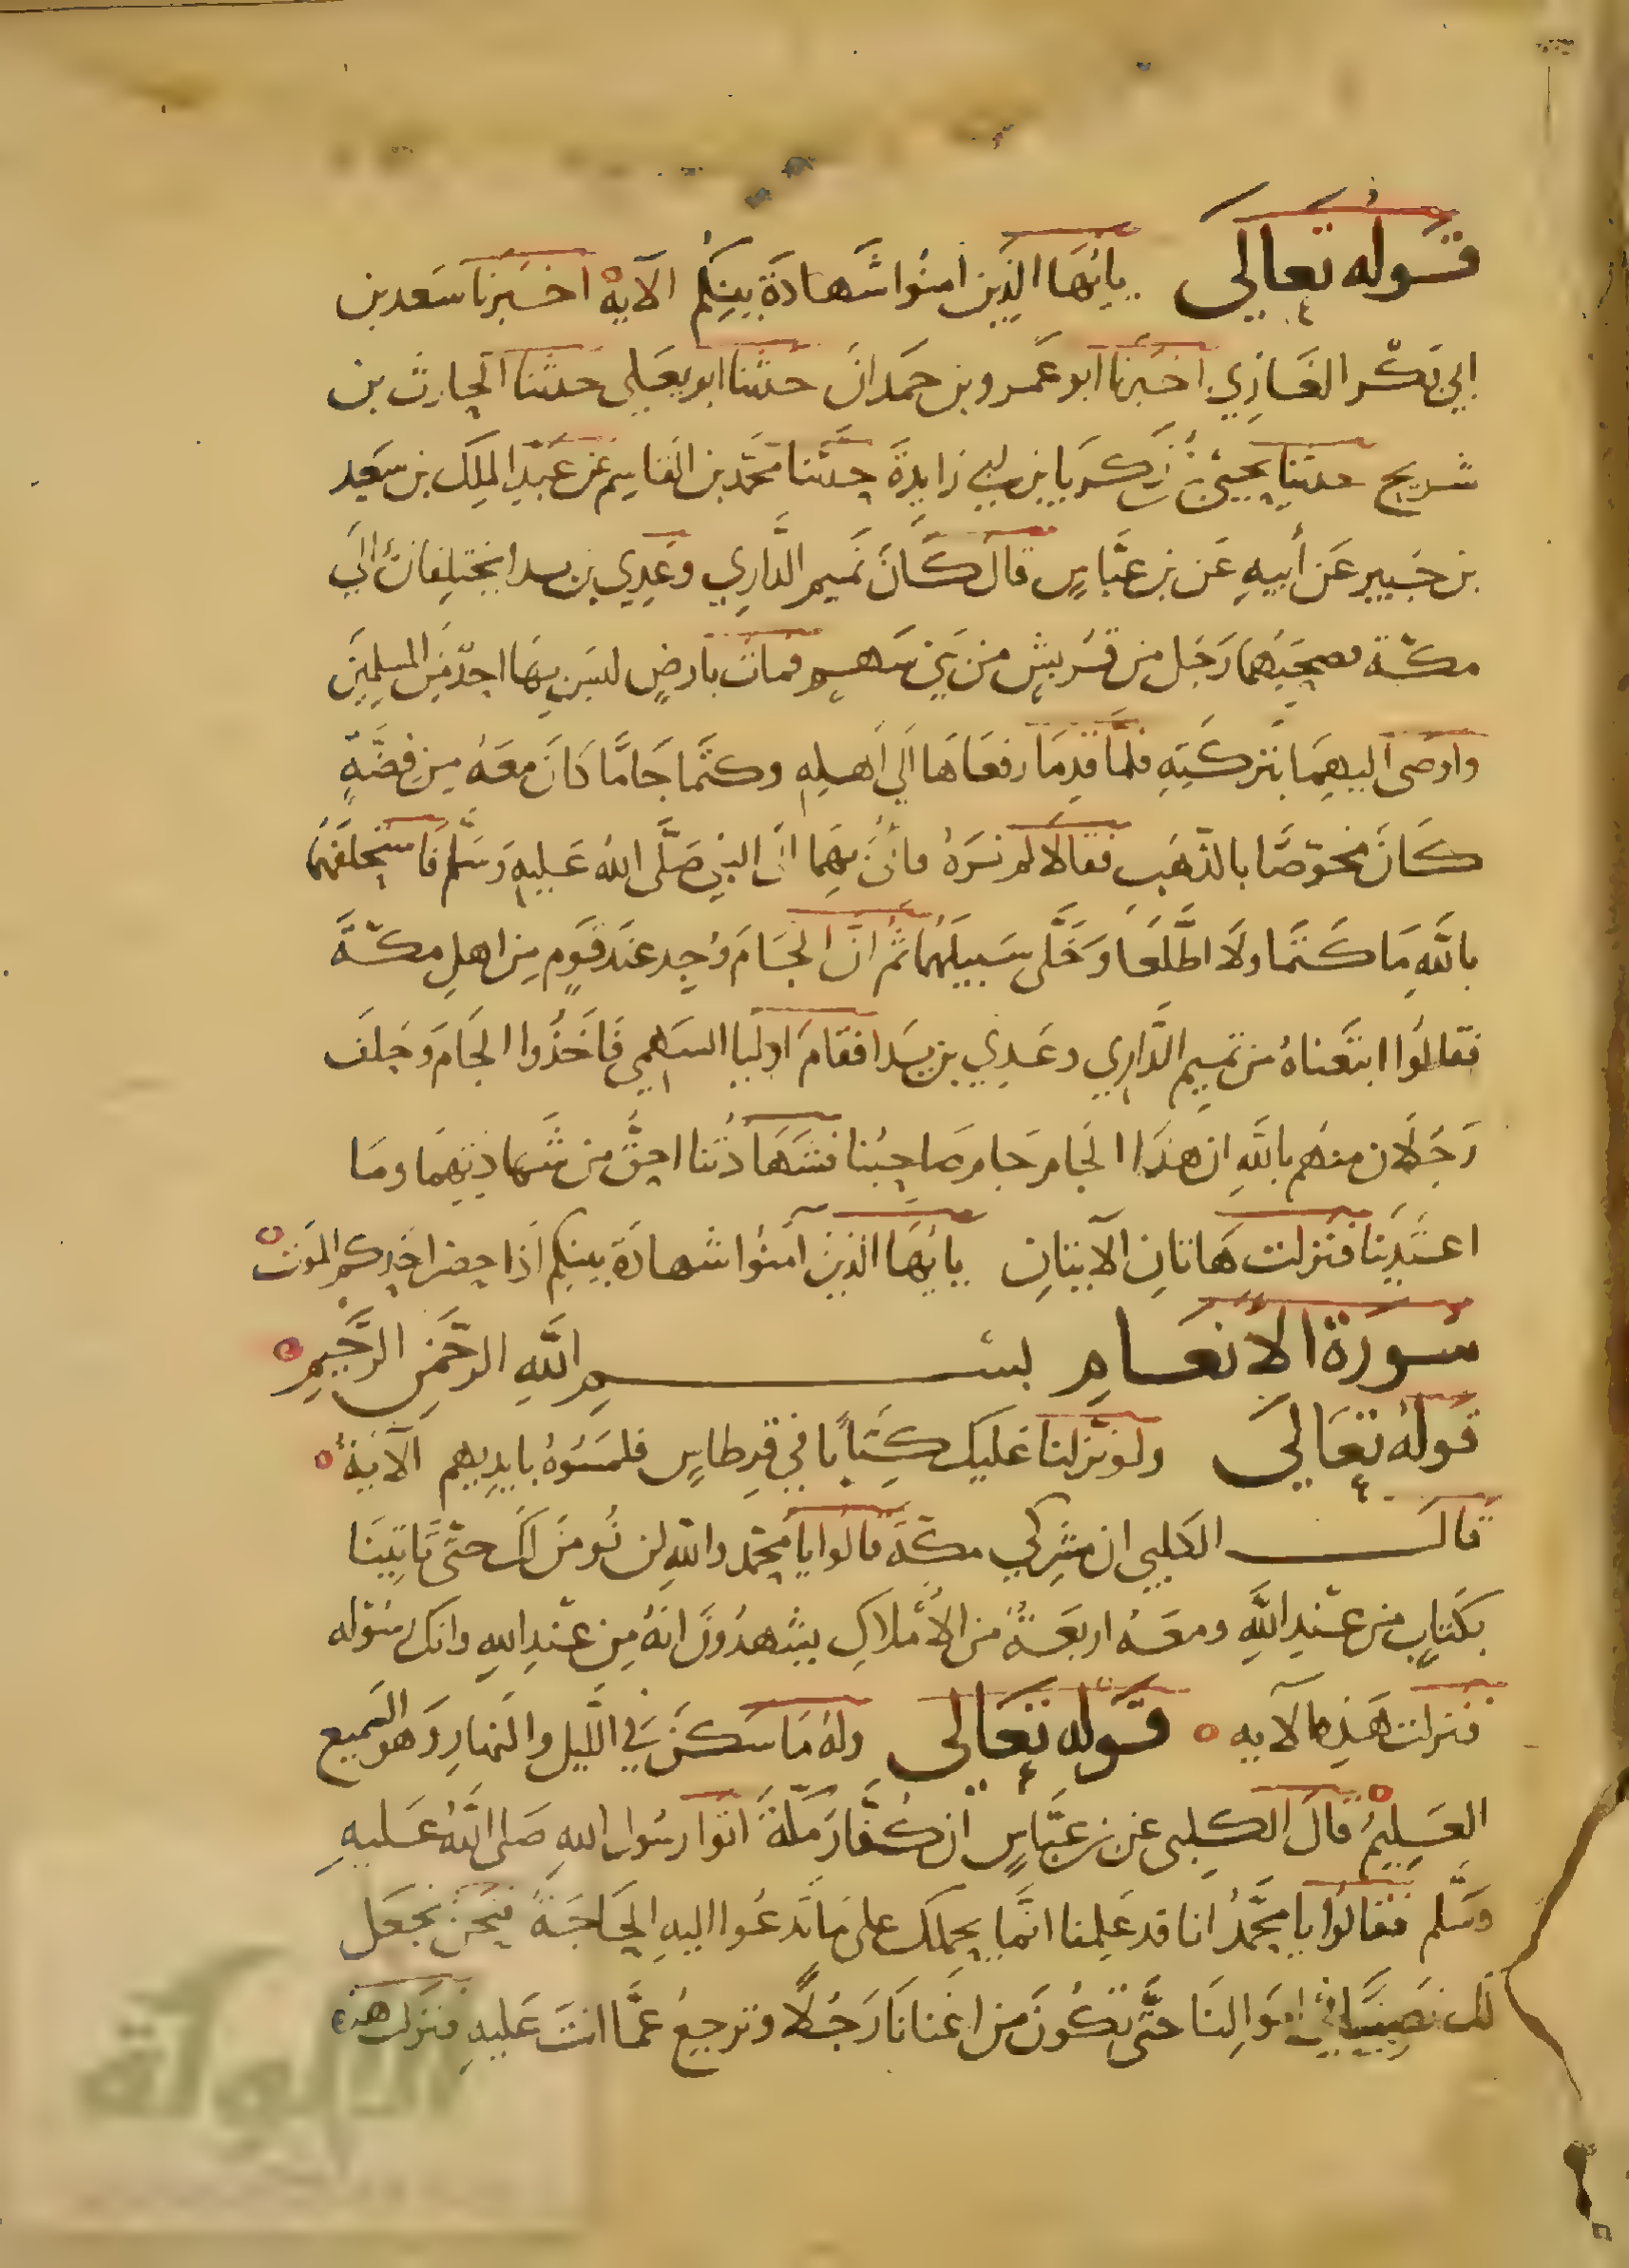 قوله تعالى يايها الذين امنوا شهادة بينكم الآية اخبرنا سعد بن
ابي بكر الغازي اخبرنا ابو عمرو بن حمدان حدثنا ابو يعلى حدثنا الحارث بن
شريح حدثنا يحيى بن زكريا بن ابي زايدة حدثنا محمد بن القاسم عن عبد الملك بن سعيد
بن جبير عن أبيه عن بن عباس قال كان تميم الداري وعدي بن بدا يختلفان الى
مكة فصحبهما رجل من قريش من بني سهم فمات بارض ليس بها احد من المسلمين
واوصى اليهما بتركته فلما قدما دفعاها الى اهله وكتما جاما كان معه من فضة
كان مخوصا بالذهب فقالا لم نره فأتي بهما الى النبي صلى الله عليه وسلم فاستحلفهما
بالله ما كتما ولا اطلعا وخلى سبيلهما ثم ان الجام وجد عند قوم من اهل مكة
فقالوا ابتعناه من تميم الداري وعدي بن بدا فقام اوليا السهمي فاخذوا الجام وحلف
رجلان منهم بالله ان هذا الجام جام صاحبنا فشهادتنا احق من شهادتهما وما
اعتدينا فنزلت هاتان الآيتان يايها الذين آمنوا شهادة بينكم اذا حضر احدكم الموت
سورة الانعام بسم الله الرحمن الرحيم
قوله تعالى ولو نزلنا عليك كتابا في قرطاس فلمسوه بايديهم الآية
قال الكلبي ان مشركي مكة قالوا يا محمد والله لن نومن لك حتى تاتينا
بكتاب من عند الله ومعه اربعة من الأملاك يشهدون انه من عند الله وانك رسوله
فنزلت هذه الآيه قوله تعالى وله ما سكن في الليل والنهار وهو السميع
العليم قال الكلبي عن بن عباس ان كفار مكة اتوا رسول الله صلى الله عليه
وسلم فقالوا يا محمد انا قد علمنا انما يحملك على ما تدعوا اليه الحاجة فنحن نجعل
لك نصيبا في اموالنا حتى تكون من اغنانا رجلا وترجع عما انت عليه فنزلت هذه
الألوكة